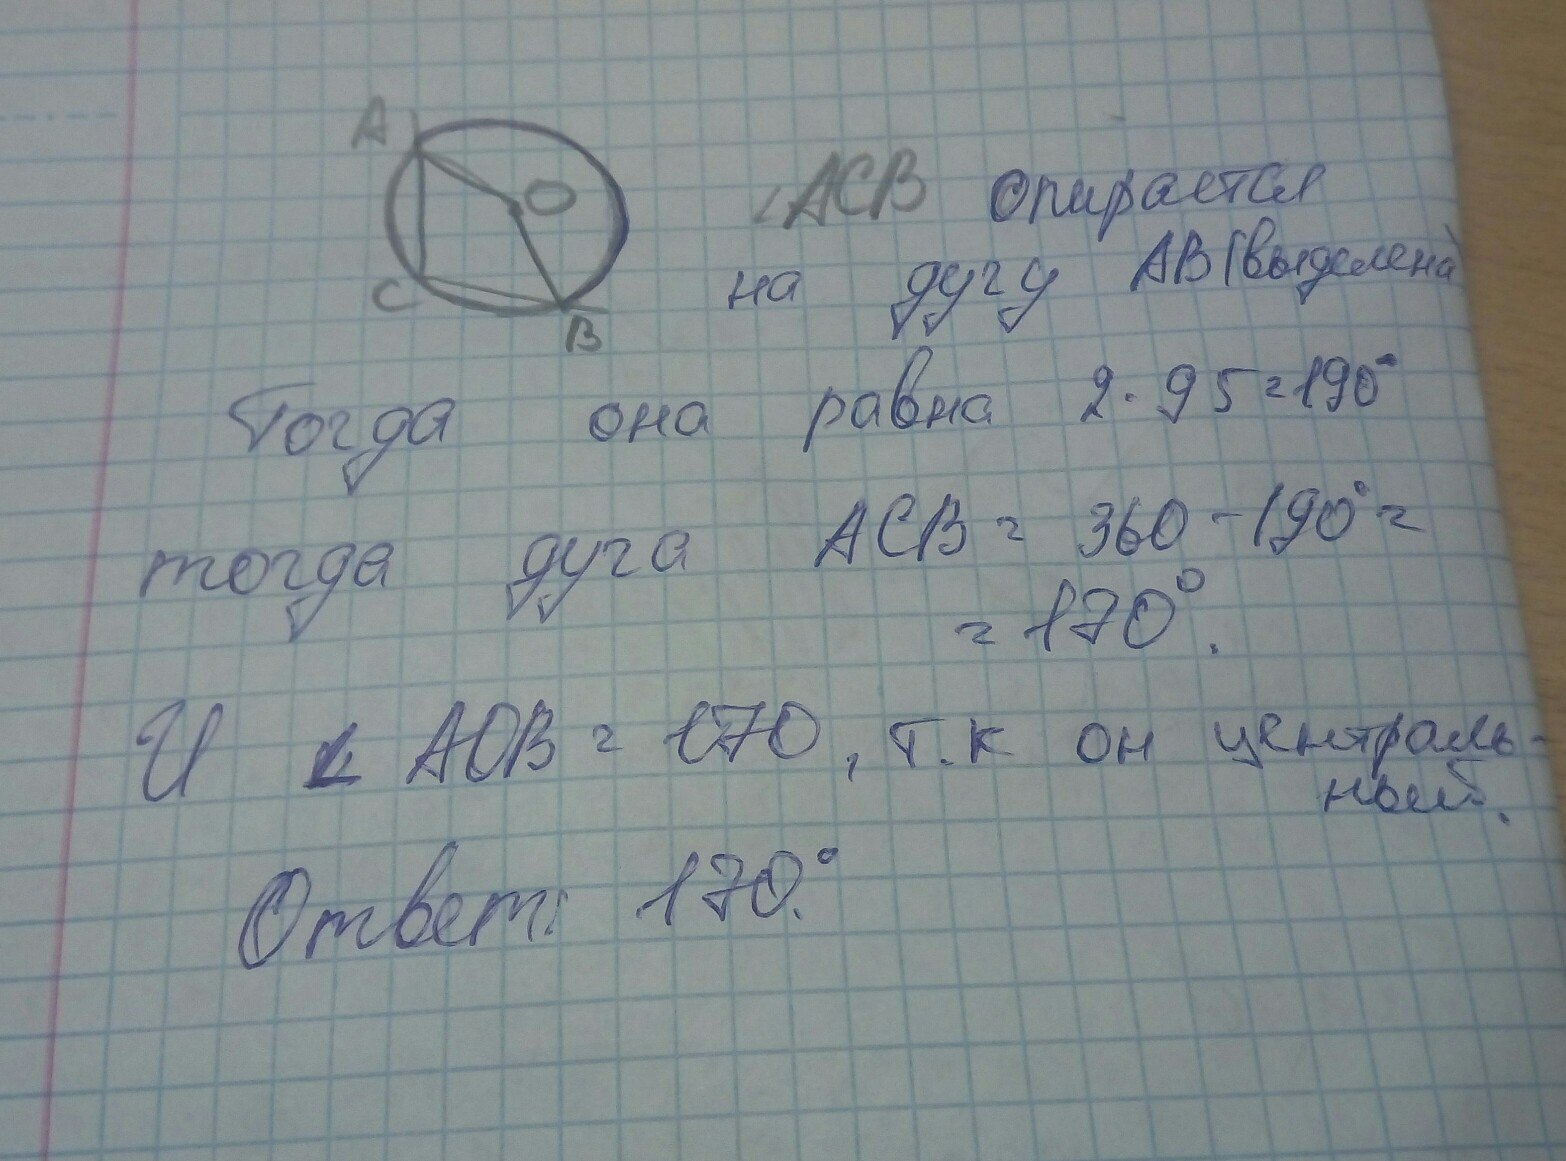 A
O
C
B
∠ACB опирается
на дугу AB (выделена)
Тогда она равна 2·95=190°
тогда дуга ACB = 360-190°=
=170°.
И ∠AOB = 170, т.к он централь-
ный.
Ответ: 170.°